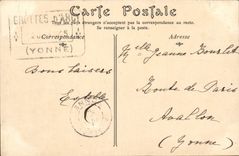 Carte Postale
Tous les pays étrangers n'acceptent pas la correspondance au recto.
Se renseigner à la poste.
GROTTES D'ARCY
(YONNE)
Correspondance
Adresse
Mlle Jeanne Bourlet
Bons baisers
Route de Paris
Avallon
(Yonne)